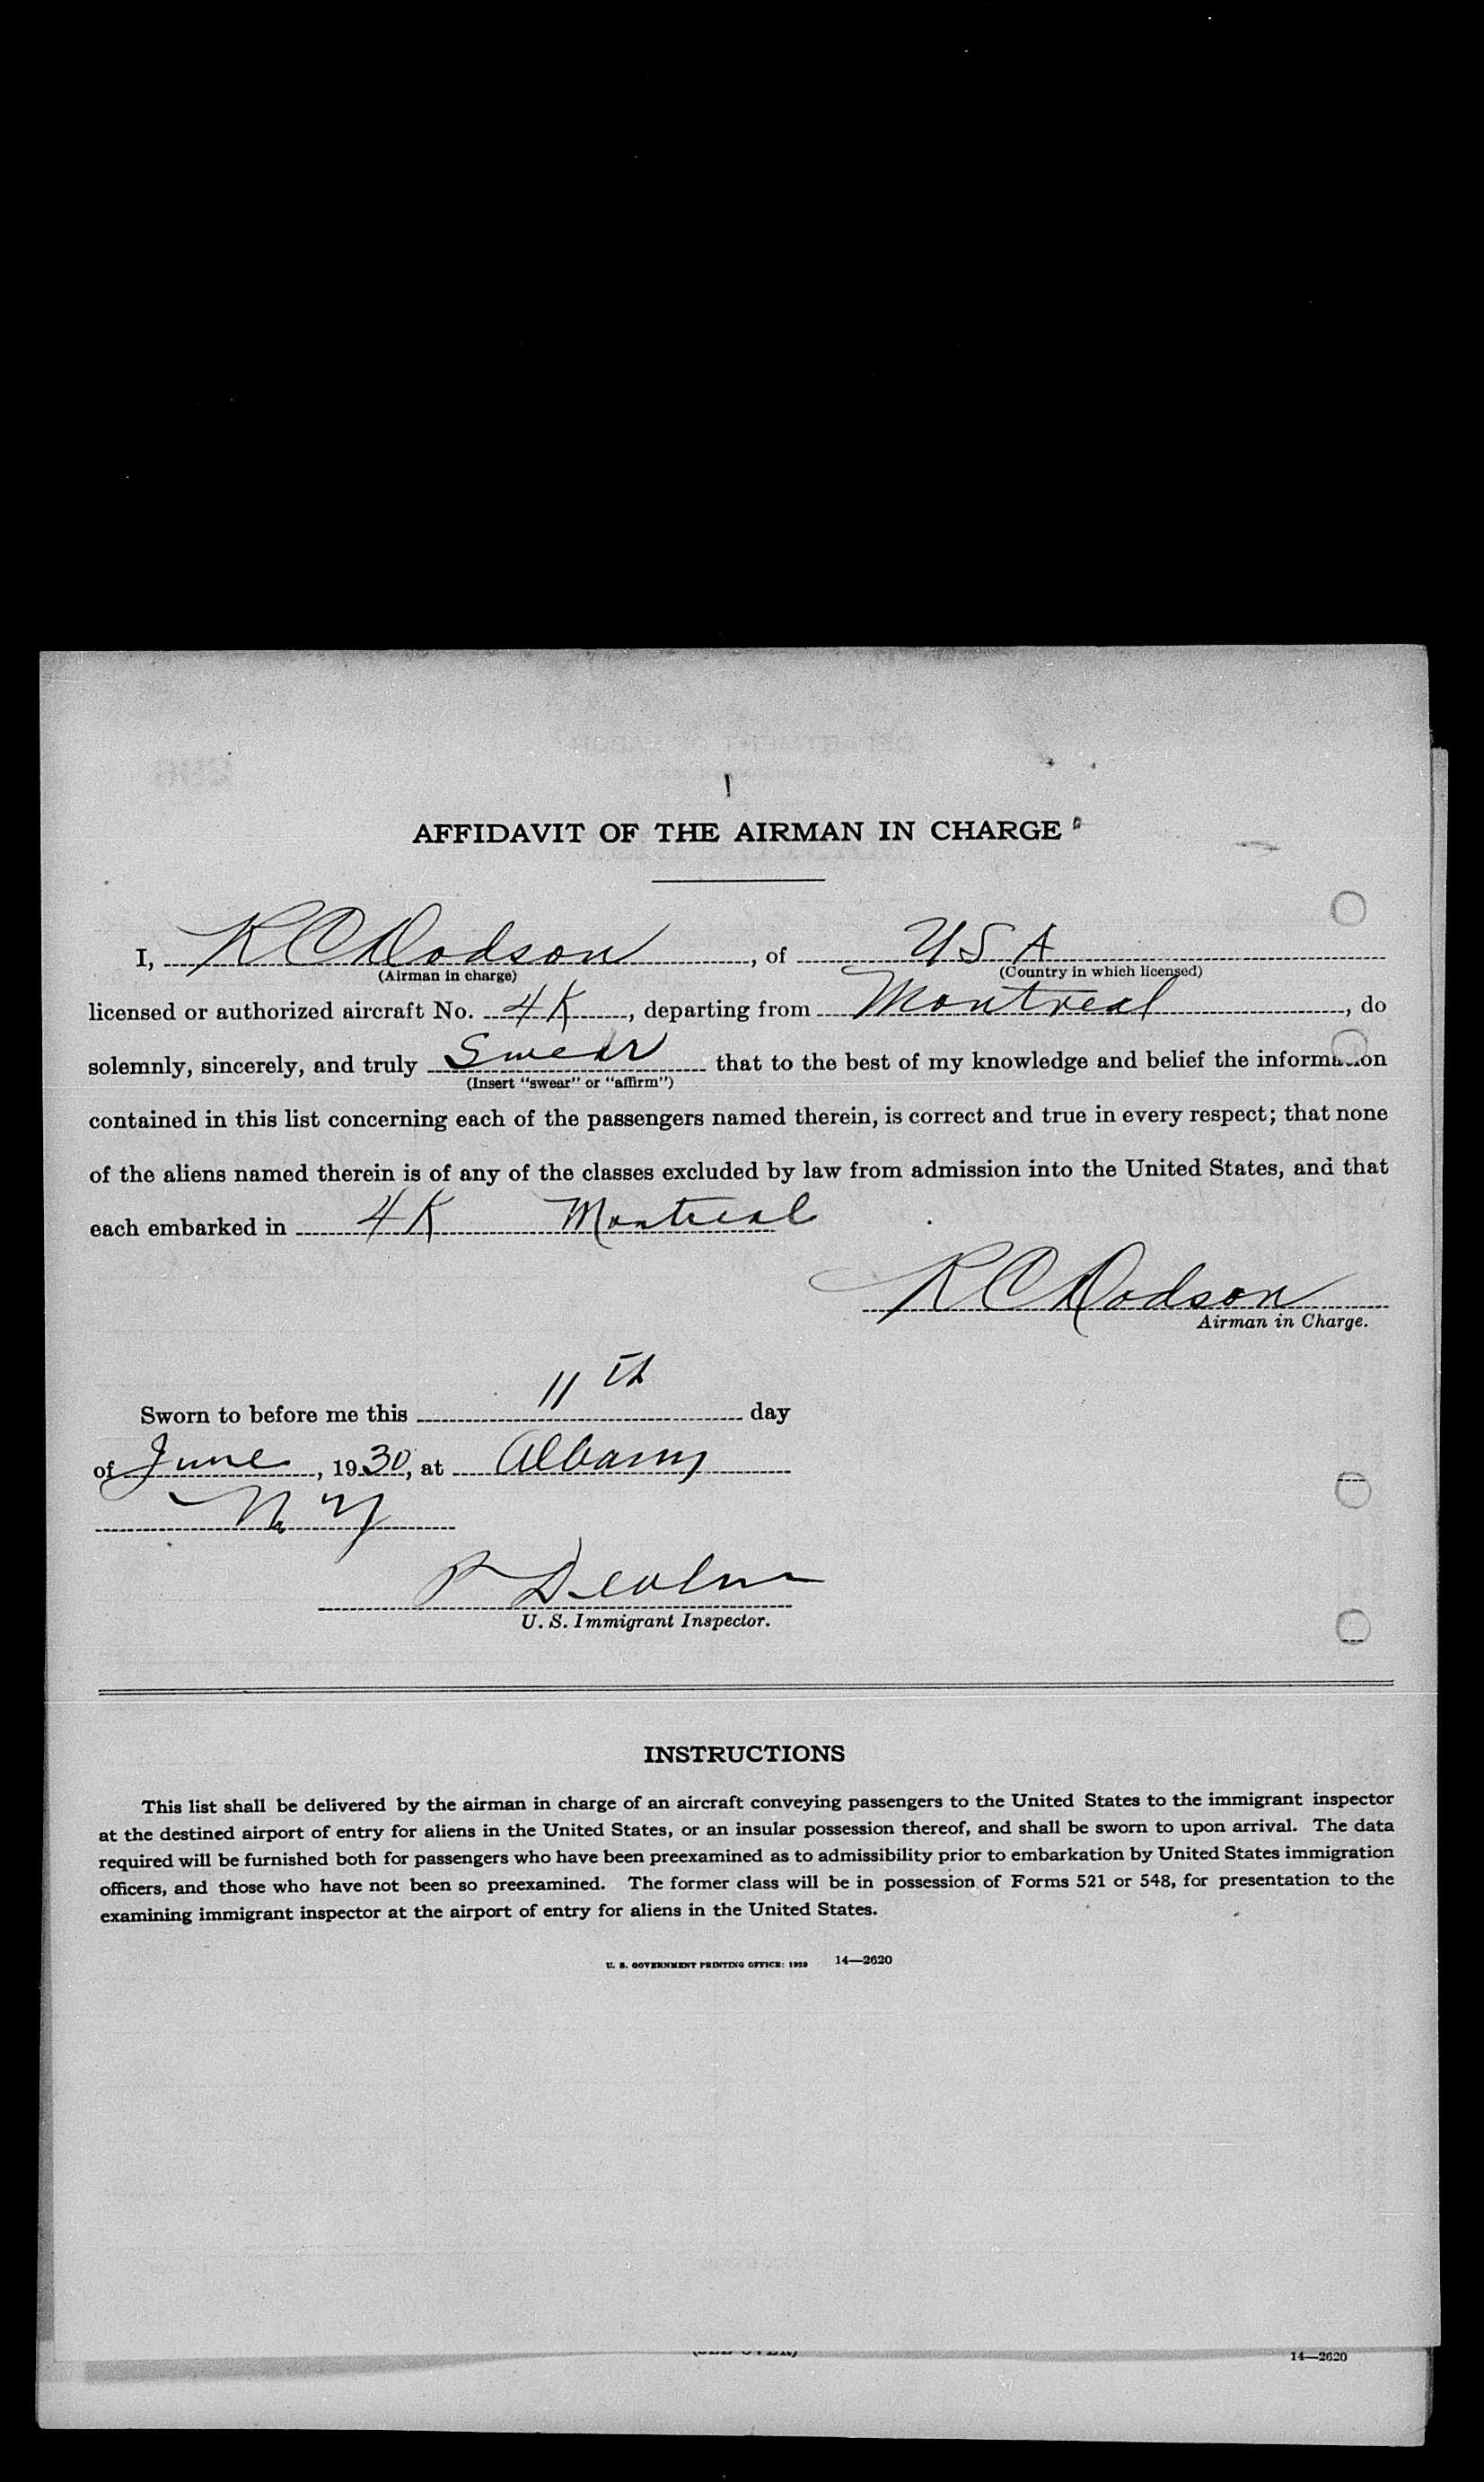 AFFIDAVIT OF THE AIRMAN IN CHARGE
I, R C Dodson, of U S A
(Airman in charge) (Country in which licensed)
licensed or authorized aircraft No. 4K, departing from Montreal, do
solemnly, sincerely, and truly Swear that to the best of my knowledge and belief the information
(Insert "swear" or "affirm")
contained in this list concerning each of the passengers named therein, is correct and true in every respect; that none
of the aliens named therein is of any of the classes excluded by law from admission into the United States, and that
each embarked in 4K Montreal
R C Dodson
Airman in Charge.
Sworn to before me this 11th day
of June, 1930, at Albany
N. Y
P Devlin
U. S. Immigrant Inspector.
INSTRUCTIONS
This list shall be delivered by the airman in charge of an aircraft conveying passengers to the United States to the immigrant inspector
at the destined airport of entry for aliens in the United States, or an insular possession thereof, and shall be sworn to upon arrival. The data
required will be furnished both for passengers who have been preexamined as to admissibility prior to embarkation by United States immigration
officers, and those who have not been so preexamined. The former class will be in possession of Forms 521 or 548, for presentation to the
examining immigrant inspector at the airport of entry for aliens in the United States.
U. S. GOVERNMENT PRINTING OFFICE: 1929 14—2620
14—2620